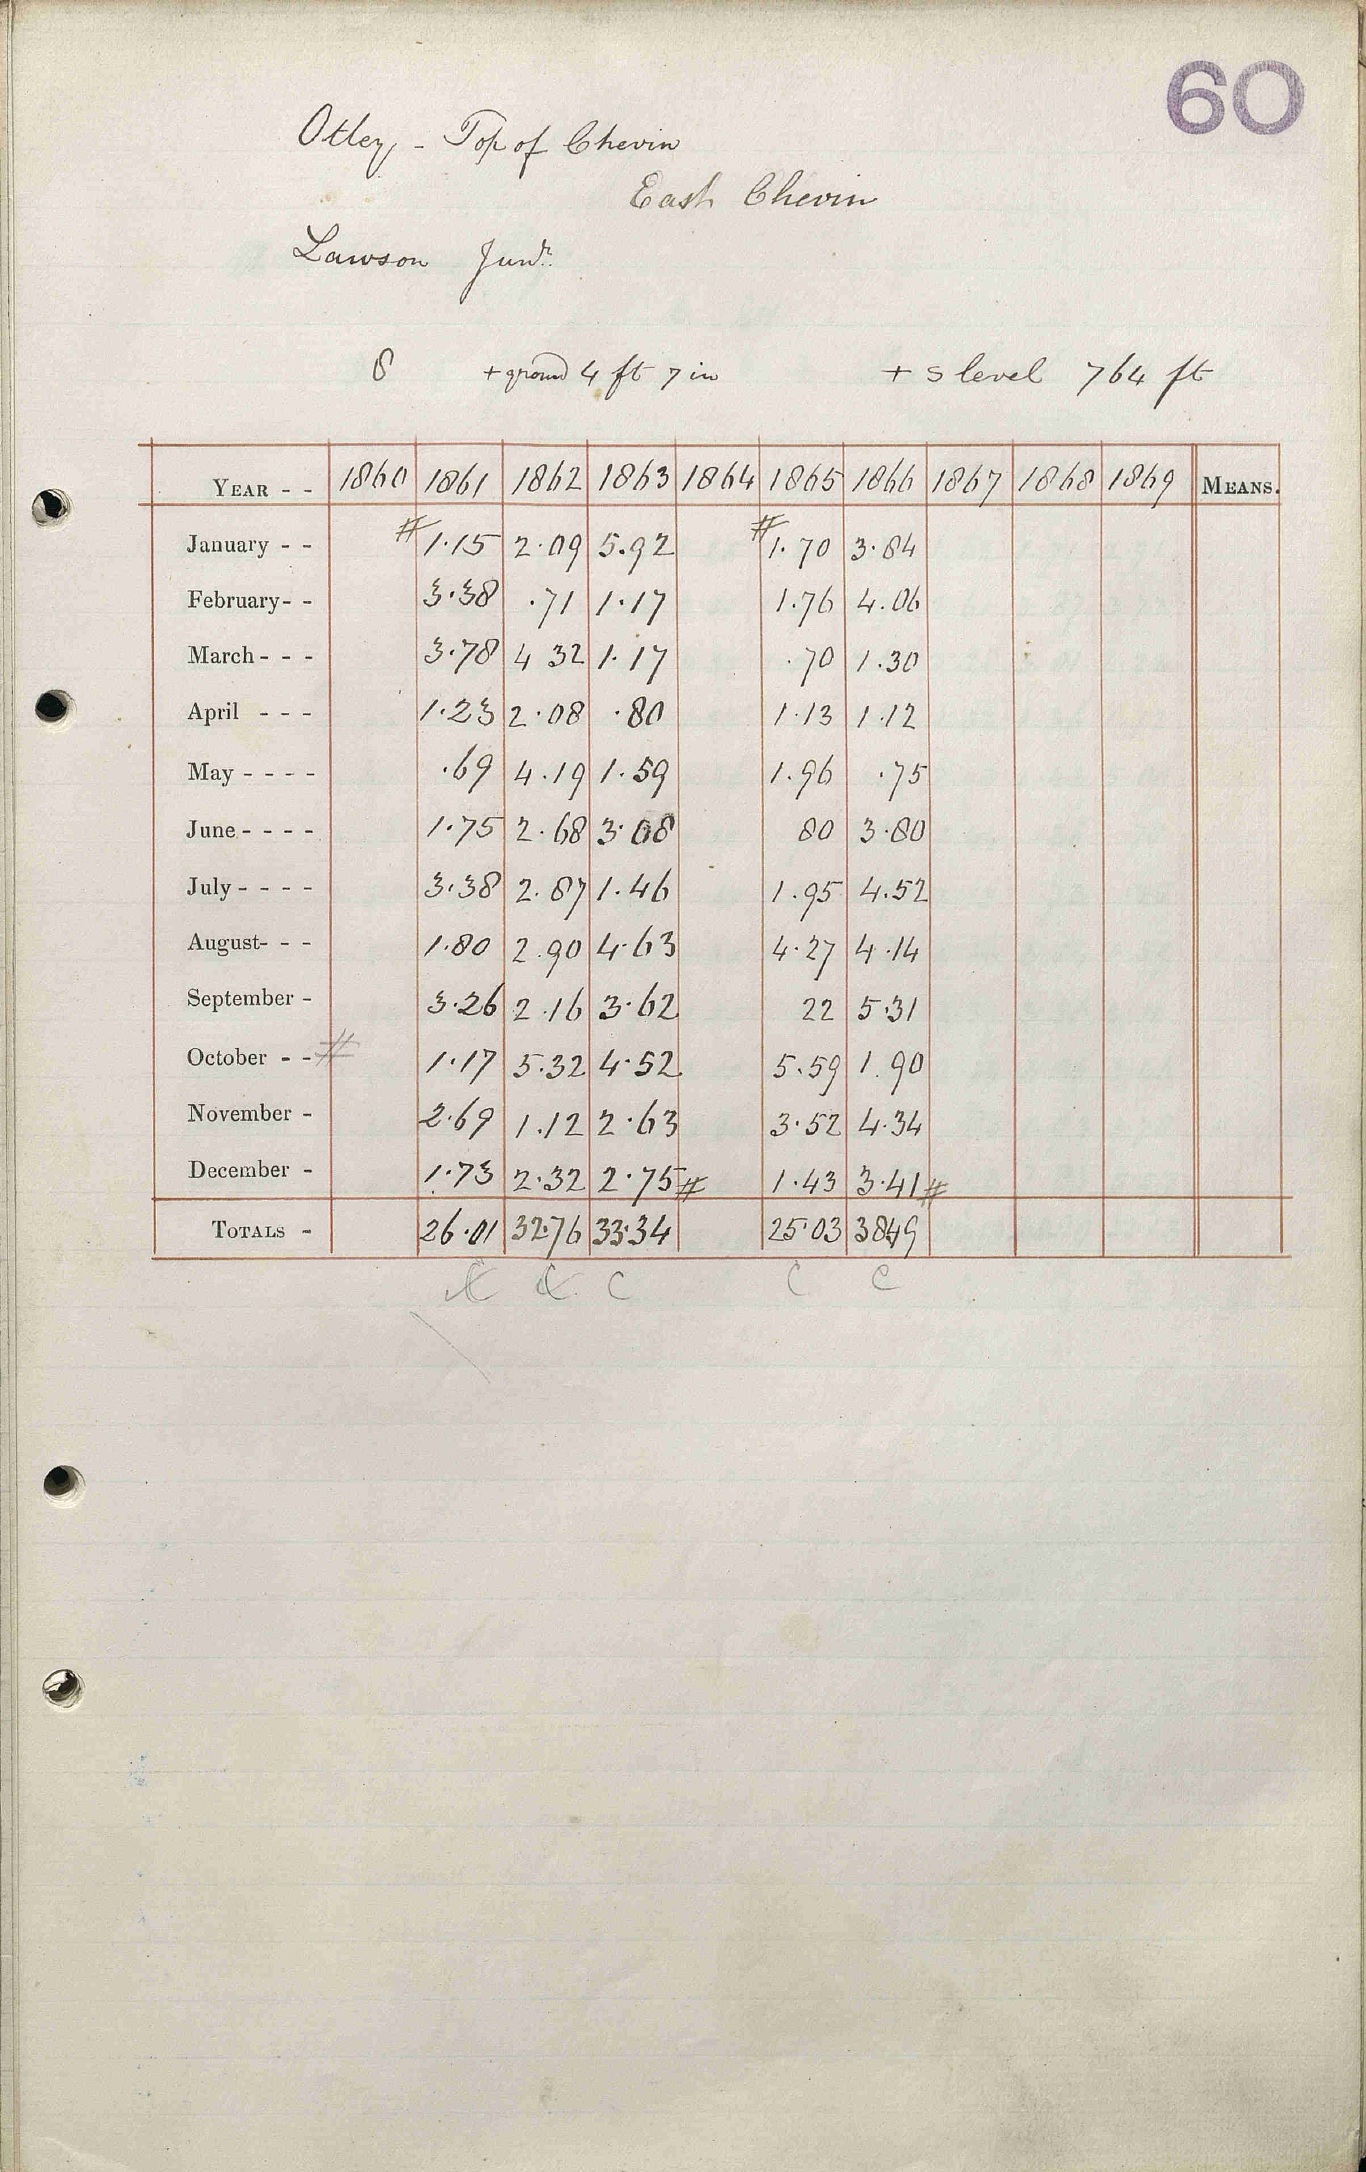 60
Otley - Top of Chevin
East Chevin
Lawson Junr.
8 + ground 4 ft 7 in + s level 764 ft
YEAR - - 1860 1861 1862 1863 1864 1865 1866 1867 1868 1869 MEANS.
January - - # 1.15 2.09 5.92 # 1.70 3.84
February- - 3.38 .71 1.17 1.76 4.06
March - - - 3.78 4 32 1.17 .70 1.30
April - - - 1.23 2.08 .80 1.13 1.12
May - - - - .69 4.19 1.59 1.96 .75
June - - - - 1.75 2.68 3.08 80 3.80
July - - - - 3.38 2.87 1.46 1.95 4.52
August- - - 1.80 2.90 4.63 4.27 4.14
September - 3.26 2.16 3.62 22 5.31
October - - # 1.17 5.32 4.52 5.59 1.90
November - 2.69 1.12 2.63 3.52 4.34
December - 1.73 2.32 2.75 # 1.43 3.41 #
TOTALS - 26.01 32.76 33.34 25.03 38.49
C C C C C